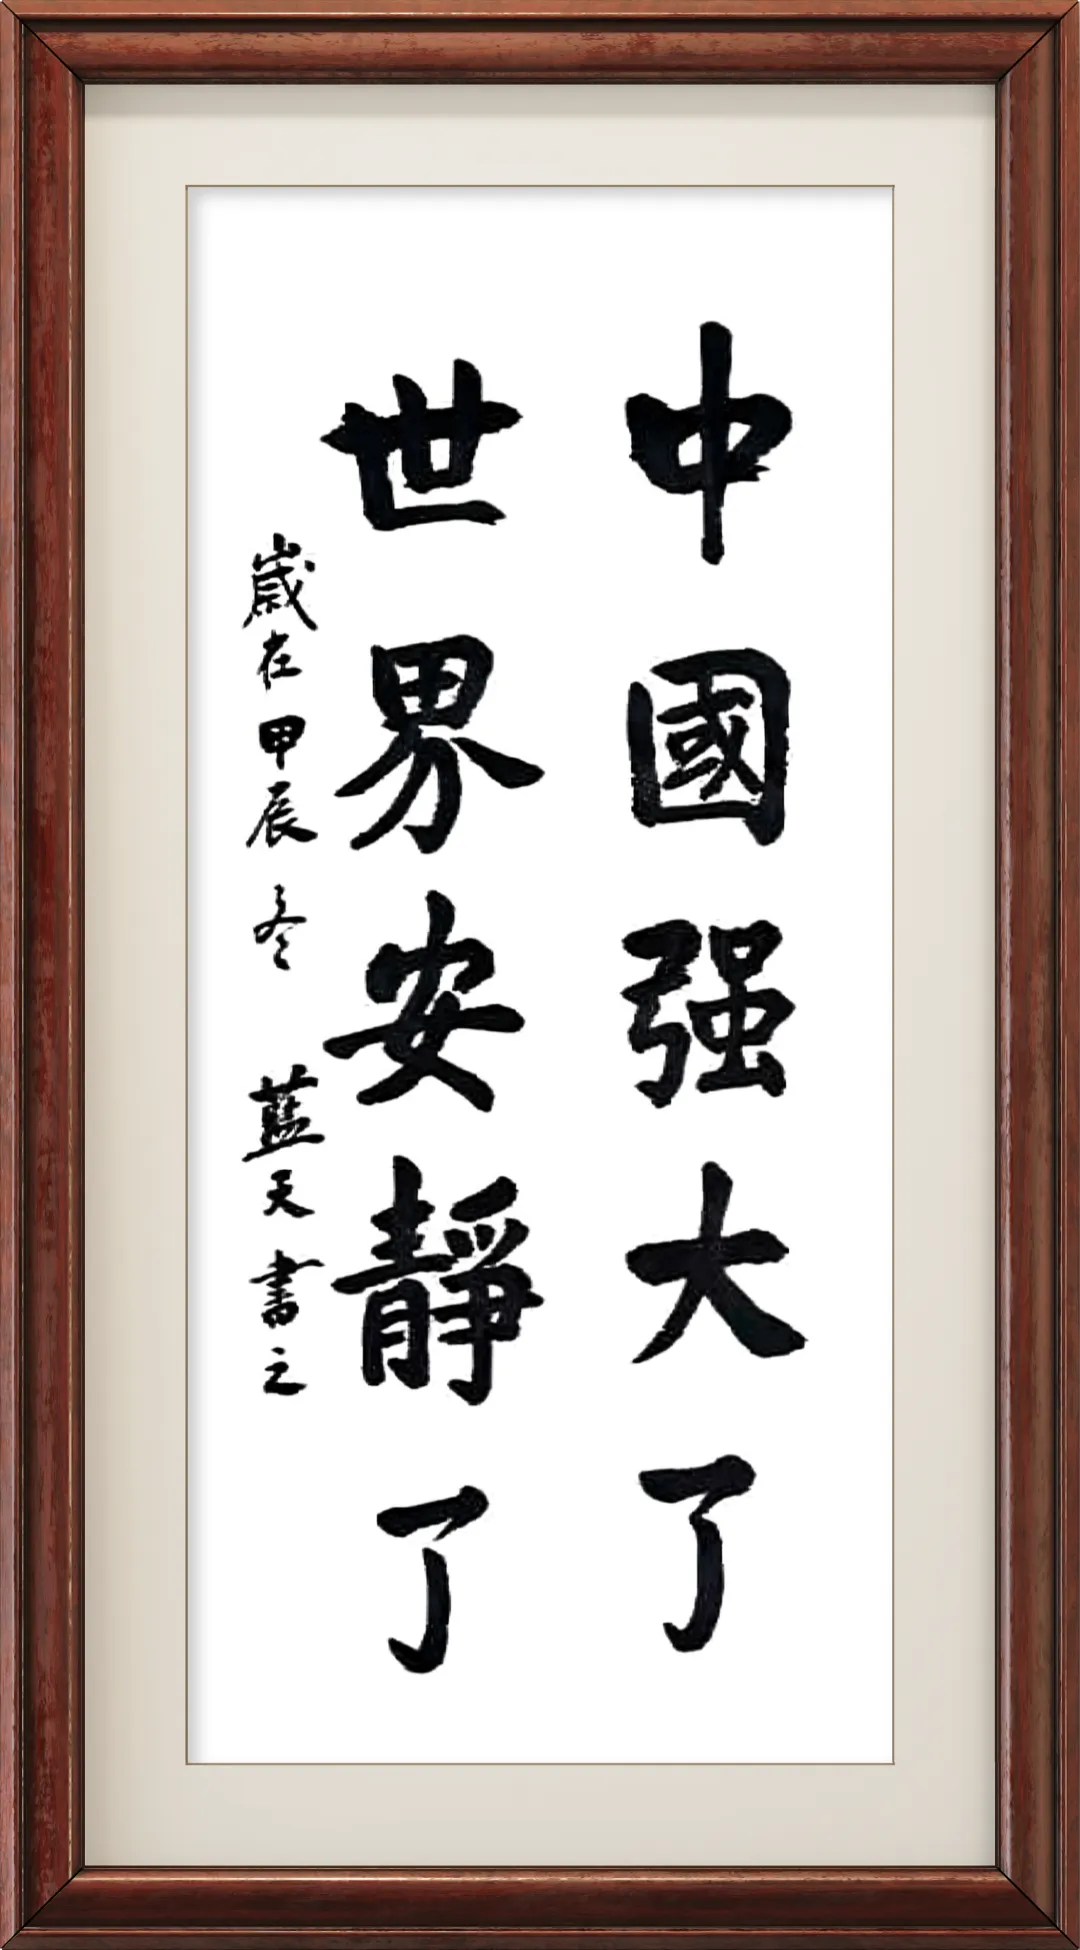 中國强大了
世界安靜了
歲在甲辰冬 藍天書之